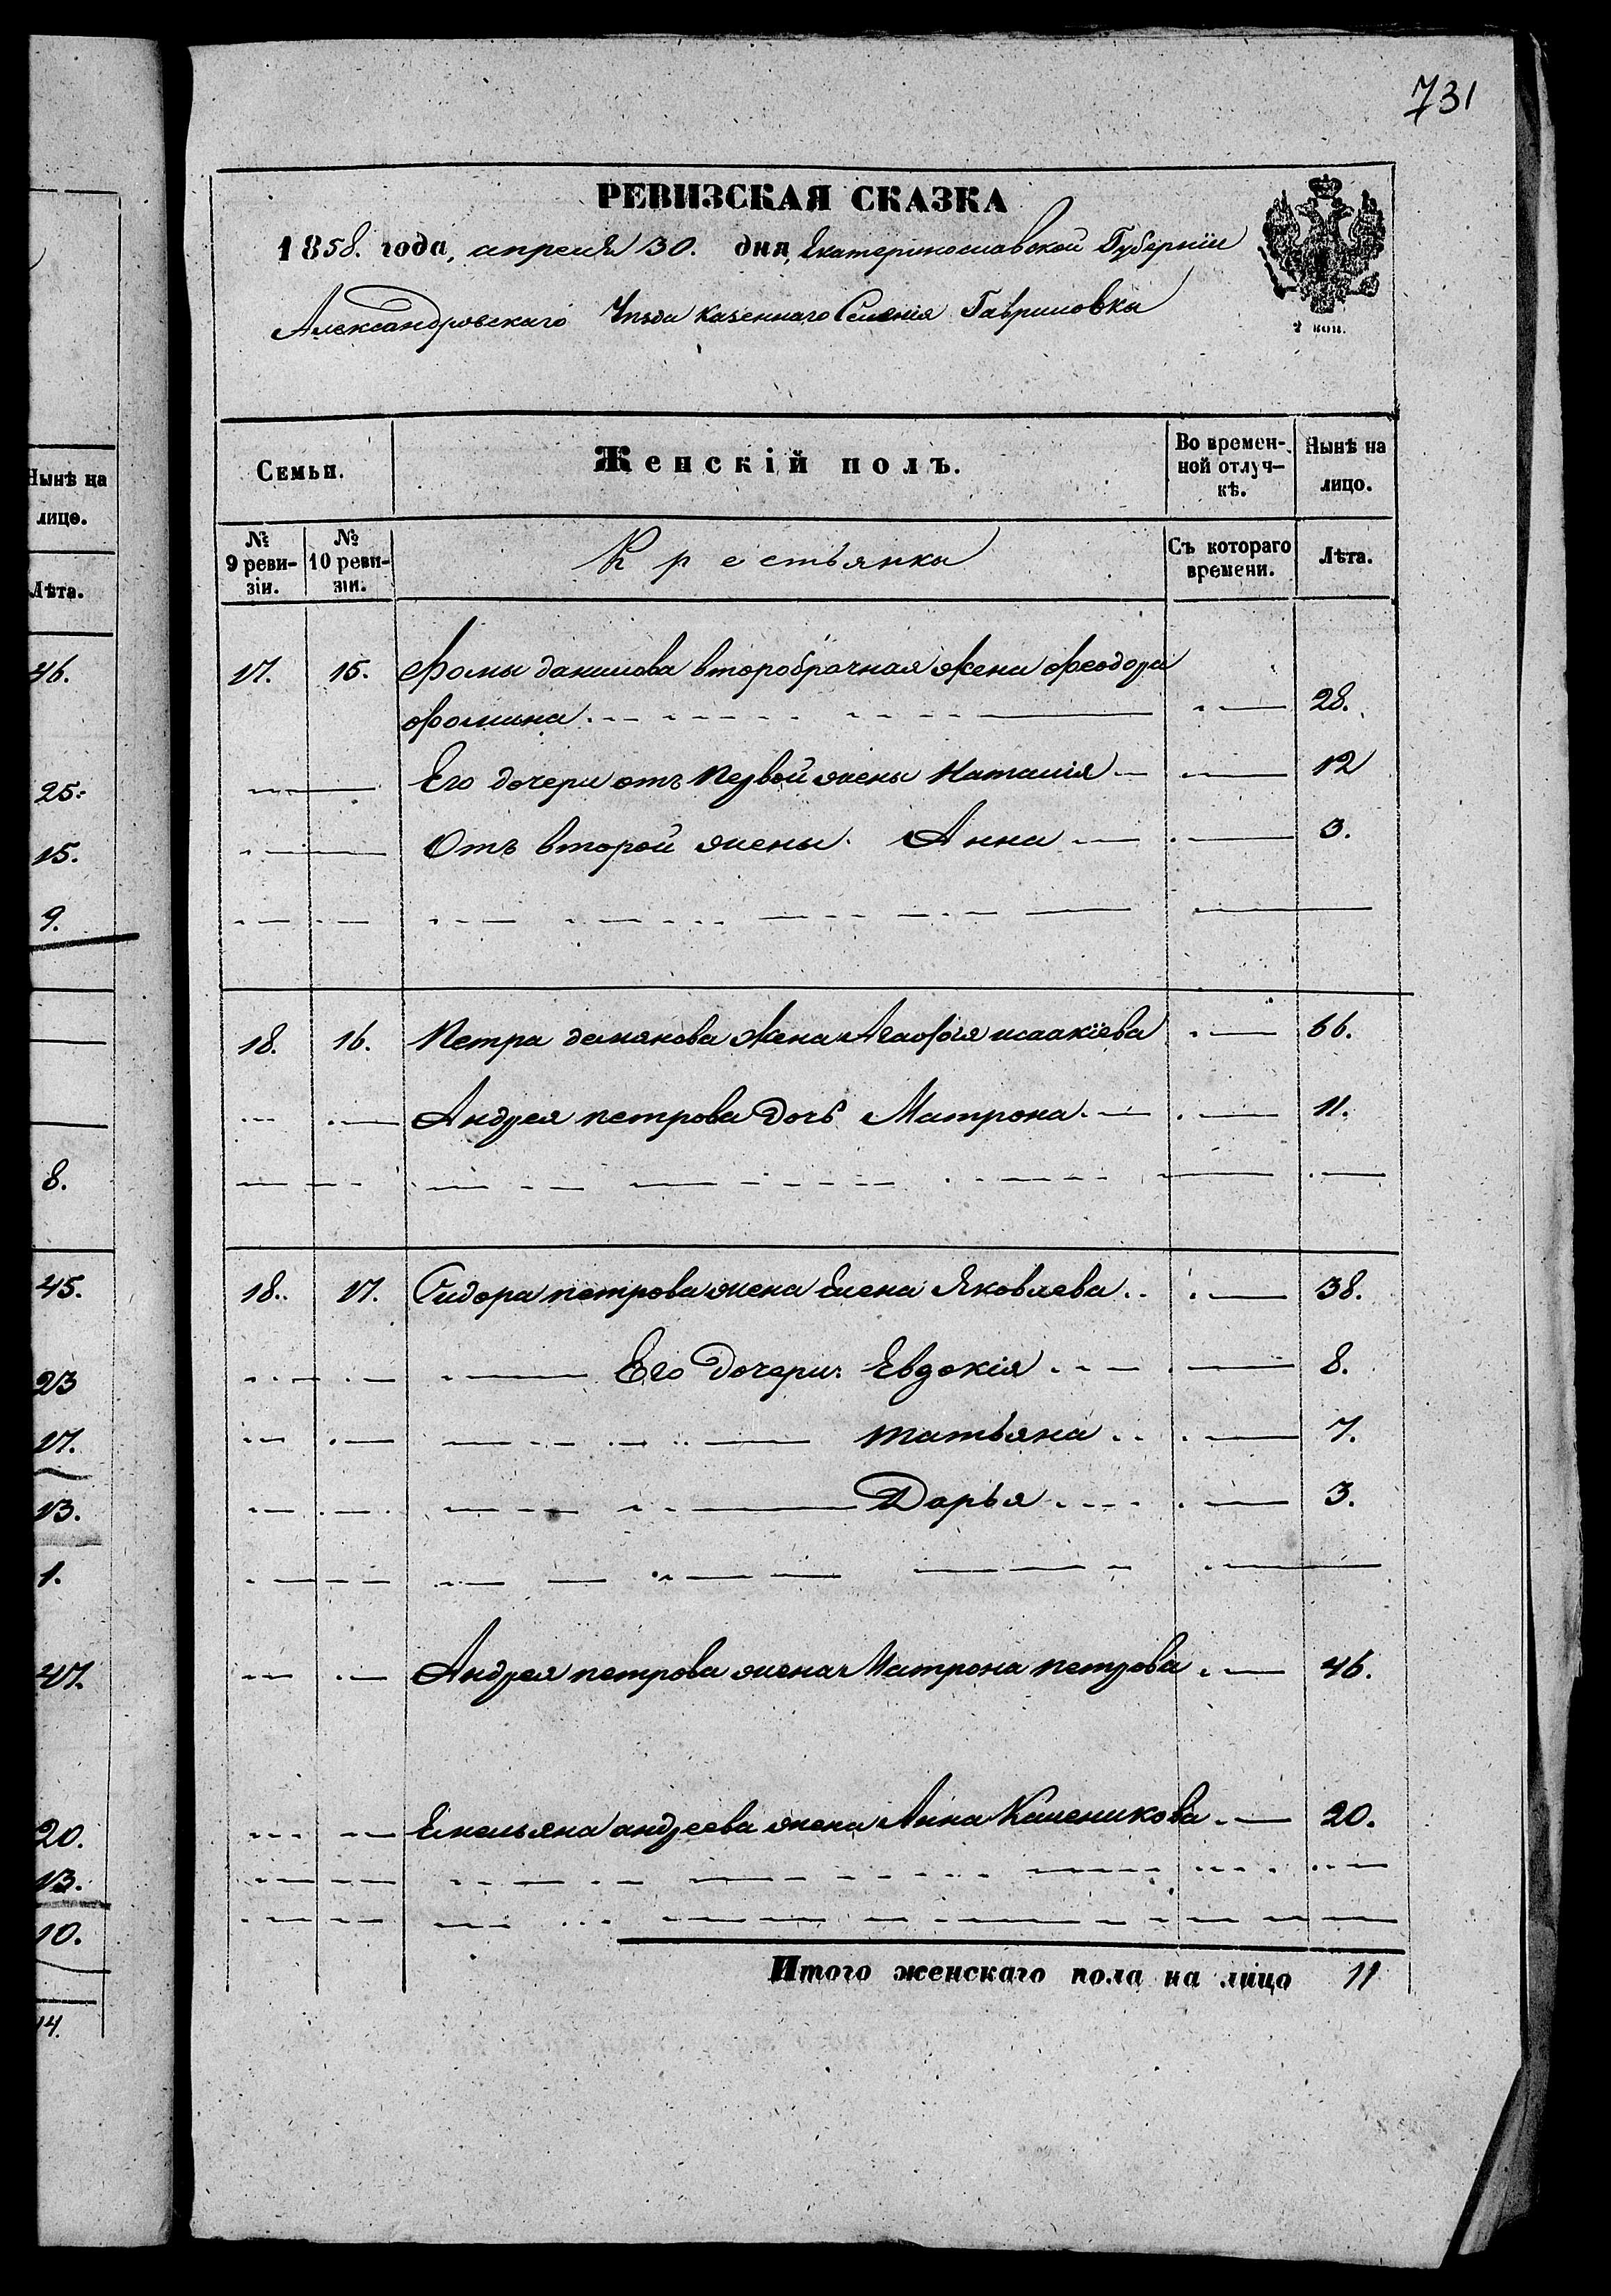 Нынѣ на
лицо.
Лѣта.
46.
25.
15.
9.
8.
45.
23
17.
13.
1.
47.
20.
13.
10.
14.
731
РЕВИЗСКАЯ СКАЗКА
1858. года, апреля 30. дня, Екатеринославской Губерніи
Александровскаго Уѣзда казеннаго Селенія Гавриловки
2 коп.
Семьи. Женскій полъ. Во времен-ной отлуч-кѣ. Нынѣ на лицо.
№ 9 реви-зіи. № 10 реви-зіи. Крестьянка Съ котораго времени. Лѣта.
17. 15. Фомы данилова второбрачная жена Феодора
Фомина 28.
Его дочери отъ первой жены Наталія 12
Отъ второй жены Анна 3.
18. 16. Петра жена Агафія исаакіева 66.
Андрея петрова дочь Матрона 11.
18. 17. Сидора петрова жена Елена Яковлева 38.
Его дочери: Евдокія 8.
татьяна 7.
Дарья 3.
Андрея петрова жена Матрона петрова 46.
Емельяна андреева жена Анна 20.
Итого женскаго пола на лицо 11